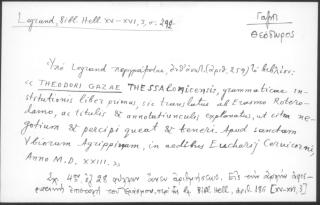 Legrand, Bibl. Hell. XV-XVI, 3, σ. 290
Γαζῆ
Θεόδωρος
Ὑπὸ Legrand περιγράφεται, (ἀριθ. 259) τὸ βιβλίον:
« THEODORI GAZAE THESSALONICENSIS, grammaticae in-
stitutionis liber primus, sic translatus ab Erasmo Rotero-
damo, ac titulis & annotatiunculis explanatus, ut citra ne-
gotium & percipi queat & teneri. Apud sanctam
Ubiorum Agrippinam, in aedibus Eucharij Cervicorni,
Anno M.D. XXIII. »
Σχ. 4ον ἐξ 28 φύλλων ἄνευ ἀριθμήσεως. Εἰς τὴν ἀρχὴν
ἐπιστολὴ τοῦ Ἐράσμου, Bibl. Hell, ἀριθ. 186 [XV-XVI, 3]